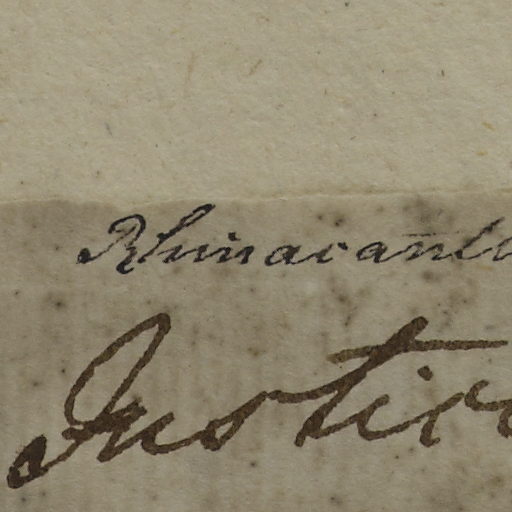 Rhinacanth
Justic